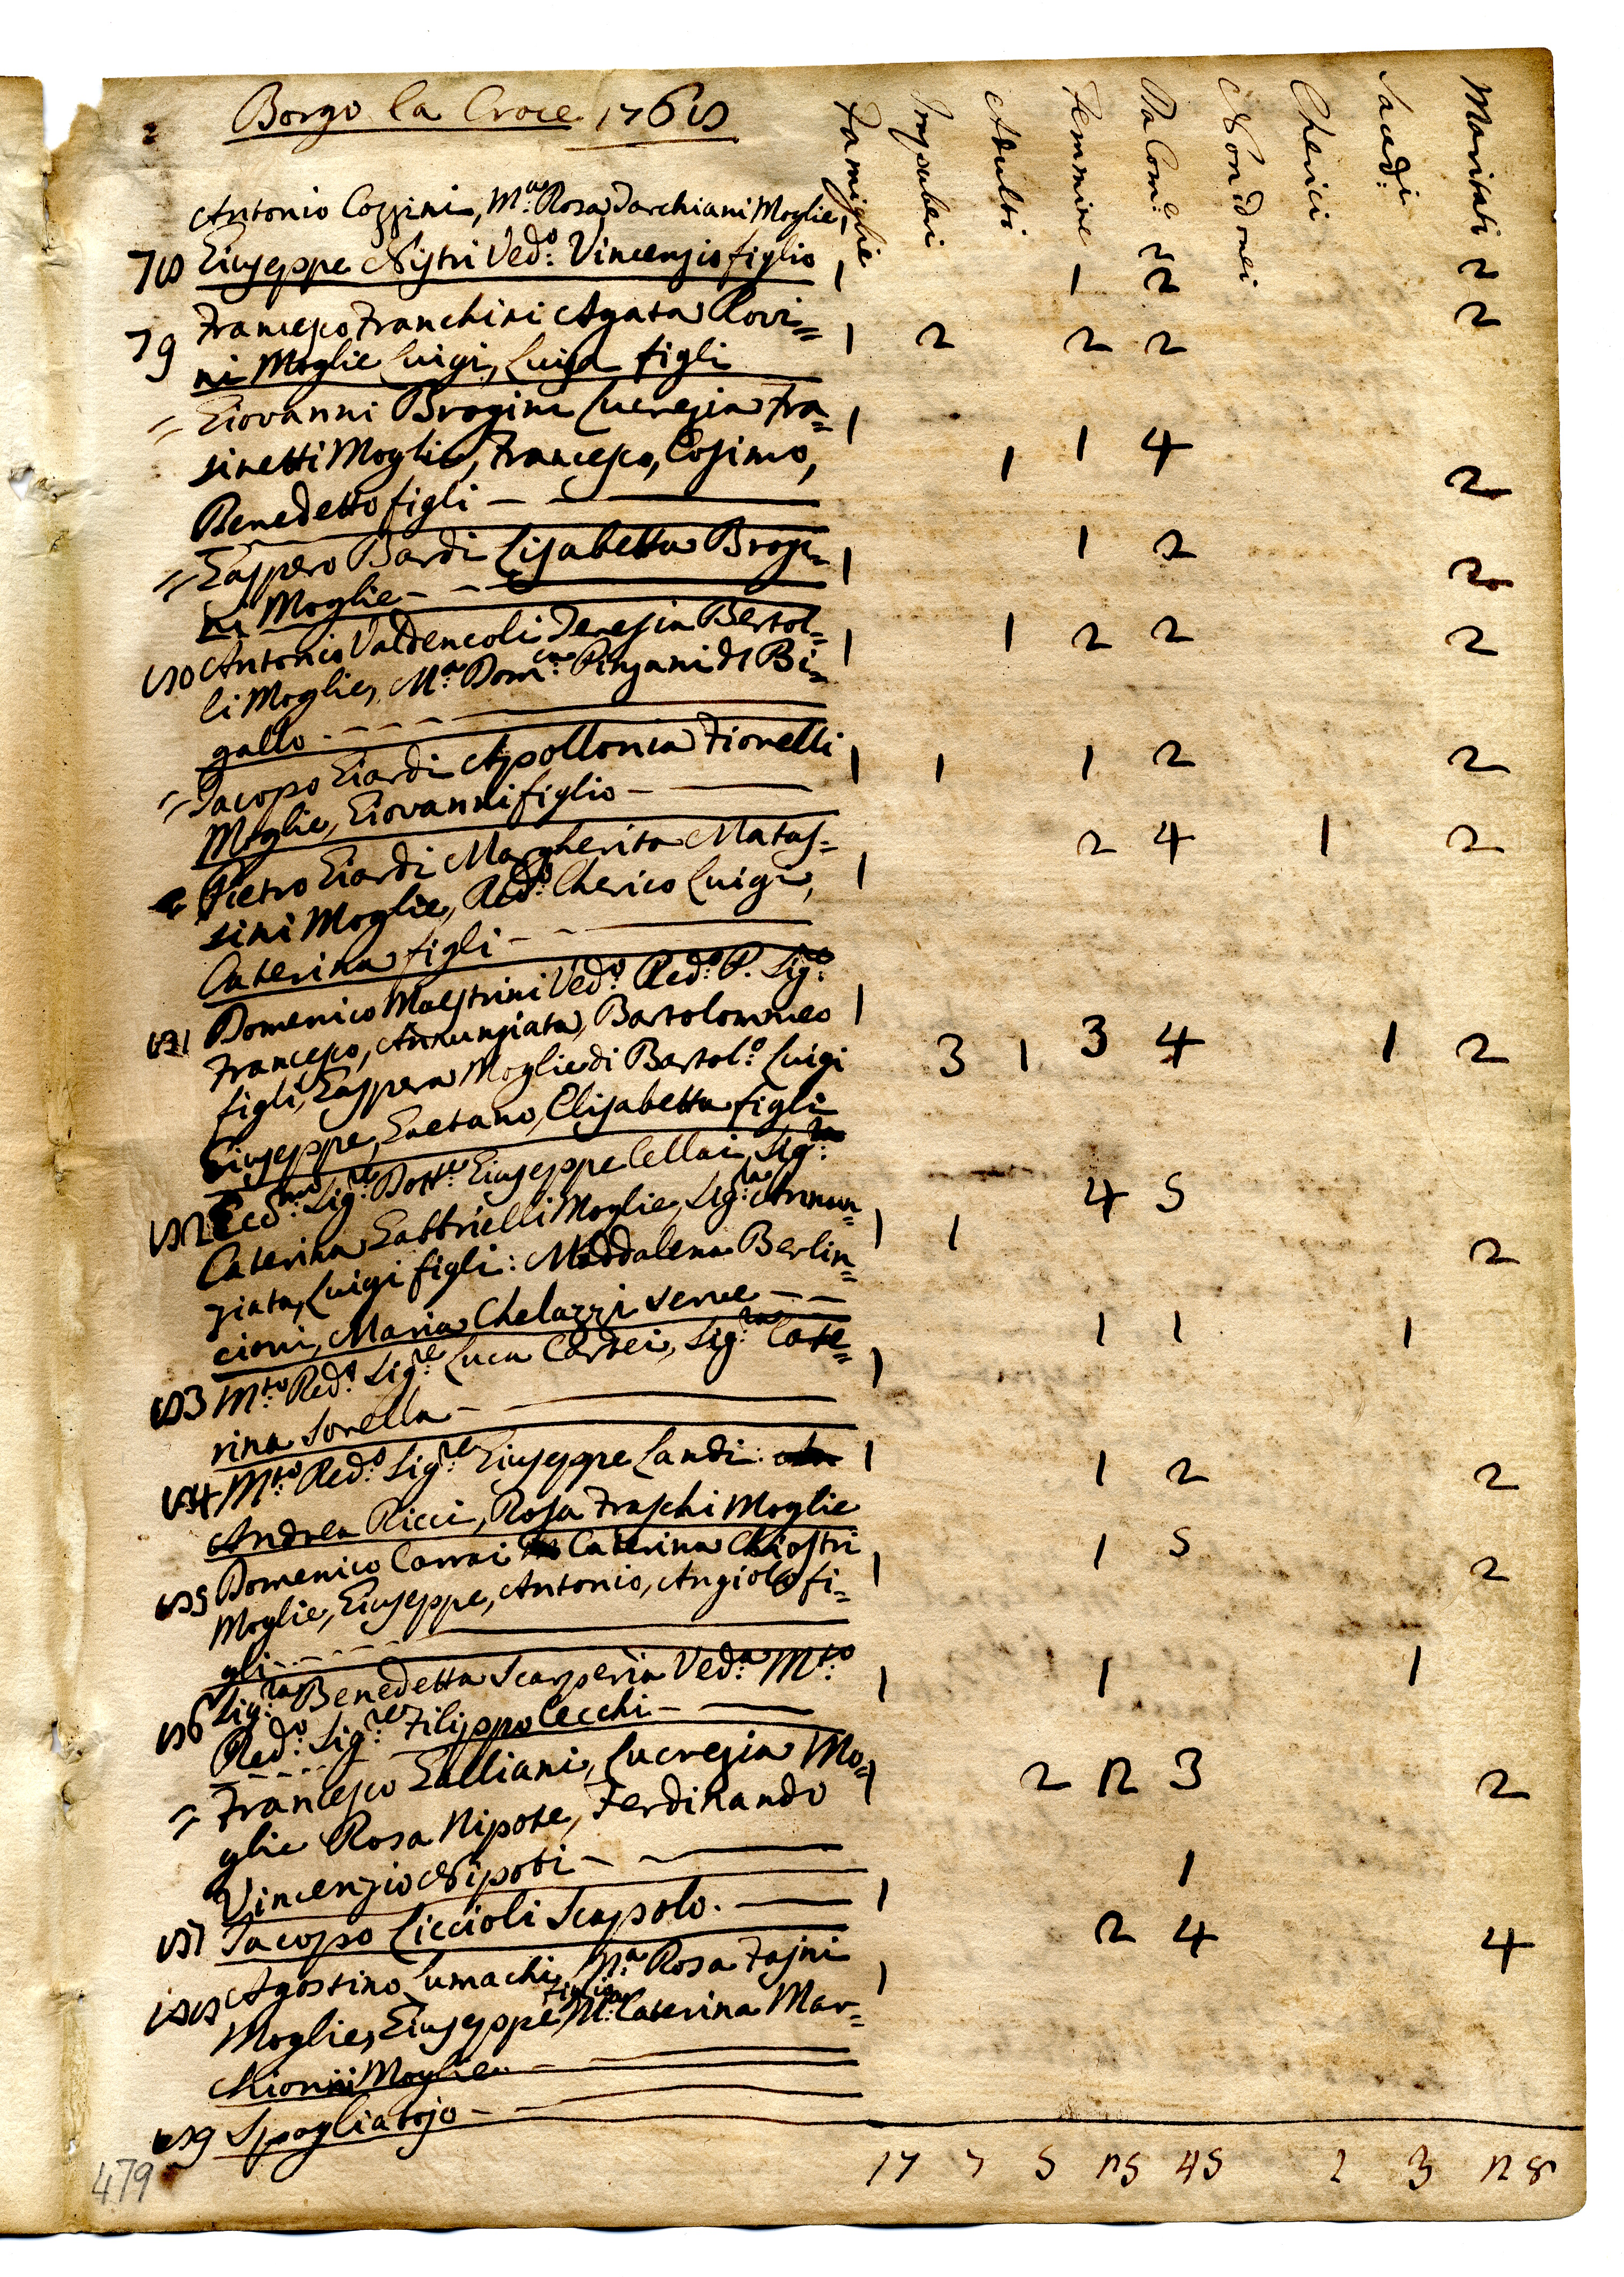 Borgo la Croce 1768
Famiglie Impuberi Adulti Femmine Da Com:e Non idonei Cherici Sacedi: Maritati
Antonio Cozzini, M.a Rosa Jarchiani Moglie, 1 2 2
78 Giuseppe Nistri Ved:o Vincenzio figlio 1 1 2
79 Francesco Franchini Agata Rovi= 1 2 2 2 2
ni Moglie Luigi, Luisa figli
= Giovanni Brogini Lucrezia Fra= 1
sinetti Moglie, Francesco, Cosimo, 1 1 4 2
Benedetto figli
= Gaspero Bardi Lisabetta Brogi= 1 1 2 2
ni Moglie
80 Antonio Valdencoli Teresia Bertol= 1 1 2 2 2
li Moglie, M:a Dom:ca Pinzani di Bi=
gallo
= Jacopo Giardi Apollonia Fionelli 1 1 1 2 2
Moglie, Giovanni figlio
= Pietro Giardi Margherita Matas= 1 2 4 1 2
sini Moglie, Red:o Cherico Luigi,
Caterina figli
81 Domenico Maestrini Ved:o Red:o P. Sig:e 1
Francesco, Annunziata, Bartolommeo 3 1 3 4 1 2
figli, Gaspera Moglie di Bartol:o Luigi
Giuseppe, Gaetano, Elisabetta figli
82 Ecc:mo Sig:re Dott:re Giuseppe Cellai, Sig:ra 4 5
Caterina Gabbrielli Moglie, Sig:ra Annun= 1 1 2
ziata, Luigi figli: Maddalena Berlin=
cioni, Maria Chelazzi serve
83 M:to Red:o Sig:re Luca Cerdei, Sig:ra Cate= 1 1 1 1
rina Sorella
84 M:to Red:o Sig:re Giuseppe Landi: 1 1 2 2
Andrea Ricci, Rosa Fraschi Moglie
85 Domenico Carrai Caterina Chiostri 1 1 5 2
Moglie, Giuseppe, Antonio, Angiolo fi=
gli
86 Sig:ra Benedetta Scarperia Ved:a M:to 1 1 1
Red:o Sig:re Filippo Cecchi
= Francesco Galliani, Lucrezia Mo= 1 2 2 3 2
glie Rosa Nipote, Ferdinando
Vincenzio Nipoti
87 Jacopo Ciccioli Scapolo. 1 1
88 Agostino Lumachi, M:a Rosa Fajni 1 2 4 4
Moglie, Giuseppe figlio M:a Caterina Mar=
chionni Moglie
89 Spogliatojo
17 7 5 25 45 1 3 28
479